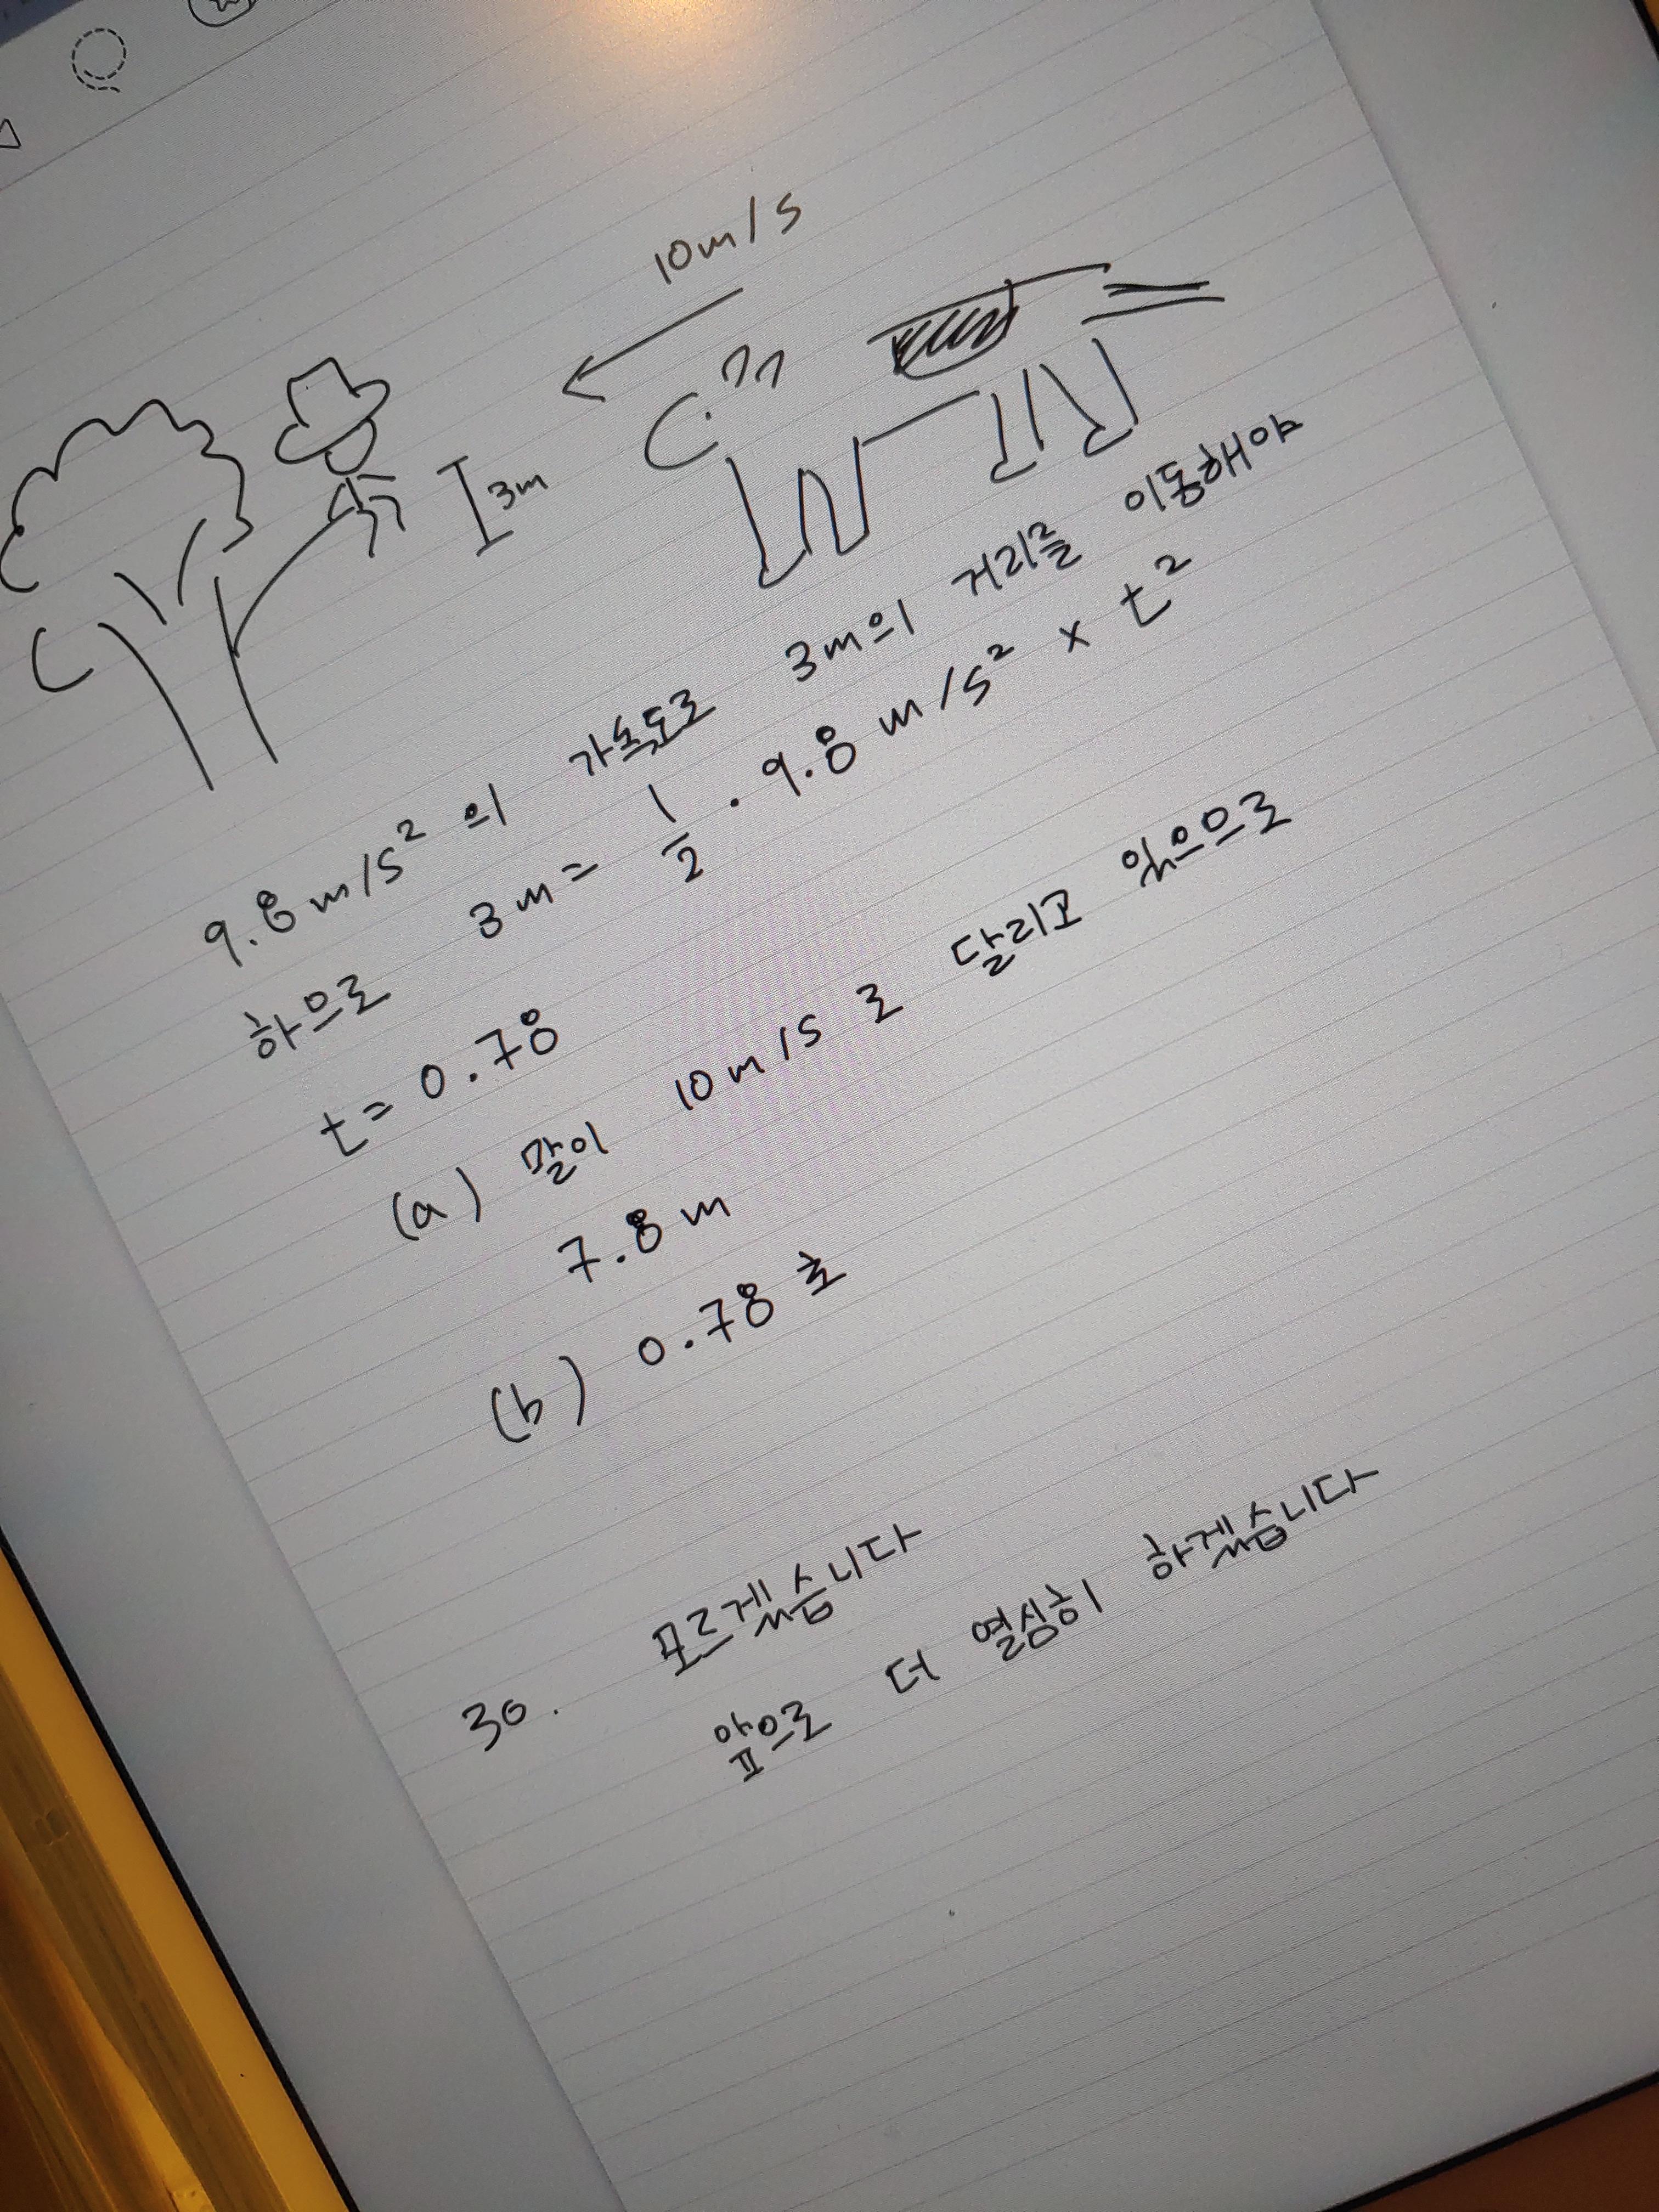 10m/s
3m
9.8m/s² 의 가속도로 3m의 거리를 이동해야
하으로 3m = 1/2 · 9.8 m/s² x t²
t = 0.78
(a) 말이 10m/s 로 달리고 있으므로
7.8m
(b) 0.78 초
30. 모르겠습니다
앞으로 더 열심히 하겠습니다